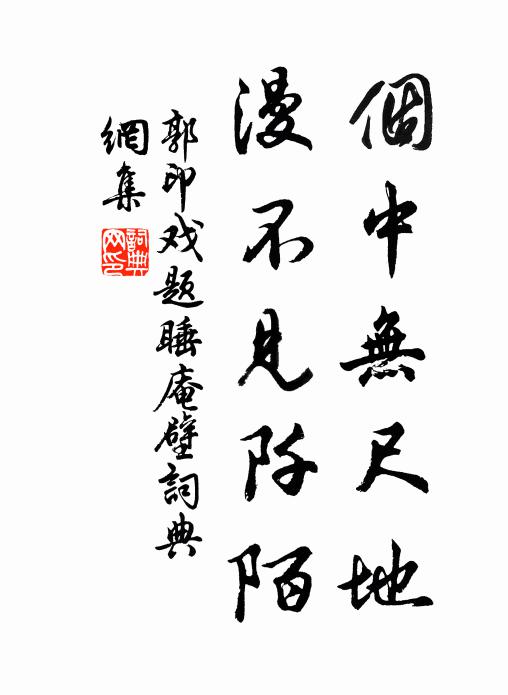 個中無尺地
漫不見阡陌
郭印戏题睡庵壁詞典
網集
詞典
网印